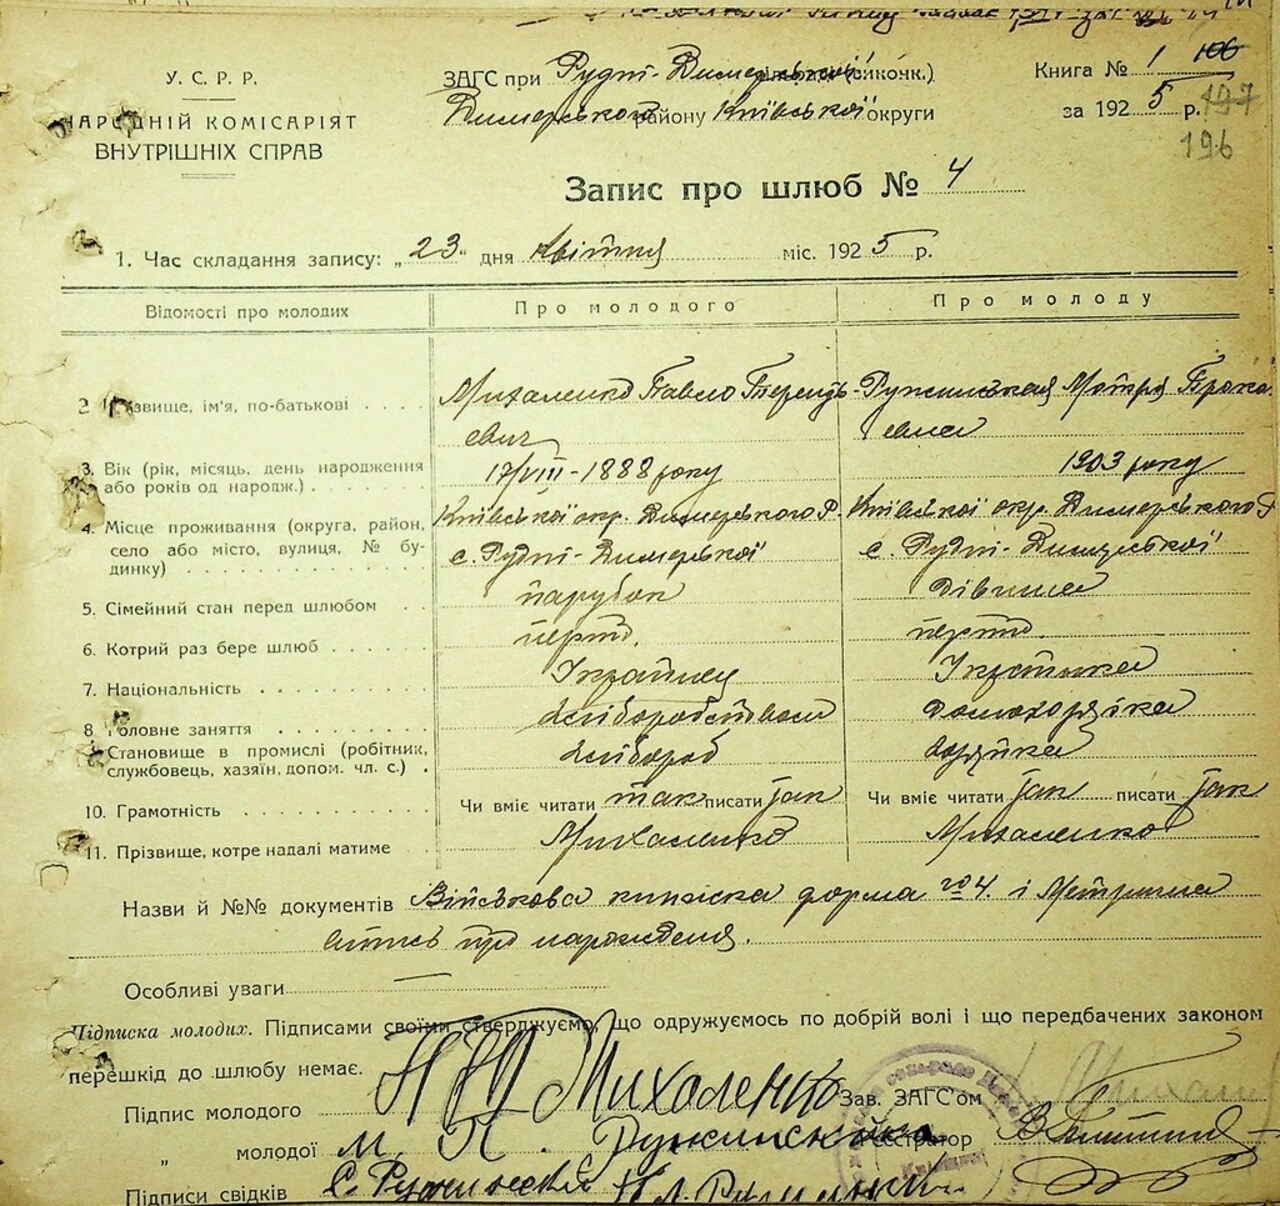 У. С. Р. Р.
НАРОДНІЙ КОМІСАРІЯТ
ВНУТРІШНІХ СПРАВ
ЗАГС при Рудні-Димерській (виконк.)
Димерського району Київської округи
Книга № 1 106
за 1925 р. 197
196
Запис про шлюб № 4
1. Час складання запису: „23“ дня Квітня міс. 1925 р.
Відомості про молодих
Про молодого
Про молоду
2 Прізвище, ім'я, по-батькові
Михаленко Павло Терентьевич
Ружинская Мотря
3. Вік (рік, місяць, день народження або років од народж.)
17/VIII-1888 року
1903 року
4. Місце проживання (округа, район, село або місто, вулиця, № будинку)
Київської окр. Димерського Р.
с. Рудні-Димерської
Київської окр. Димерського Р
с. Рудні-Димерської
5. Сімейний стан перед шлюбом
парубок
Дівчина
6. Котрий раз бере шлюб
перто.
перто.
7. Національність
Українец
Українька
8 Головне заняття
хліборобством
Домохозяйка
9. Становище в промислі (робітник, службовець, хазяїн, допом. чл. с.)
хлібороб
хозяйка
10. Грамотність
Чи вміє читати так писати так
Чи вміє читати так писати так
11. Прізвище, котре надалі матиме
Михаленко
Михаленко
Назви й №№ документів Військова книжка форма №4. і Метрична
витпсь про народження.
Особливі уваги —
Підписка молодих. Підписами своїми стверджуємо, що одружуємось по добрій волі і що передбачених законом
перешкід до шлюбу немає.
Підпис молодого Михаленко
Зав. ЗАГС'ом
„ молодої М. П. Ружинська
Реєстратор
Підписи свідків С.